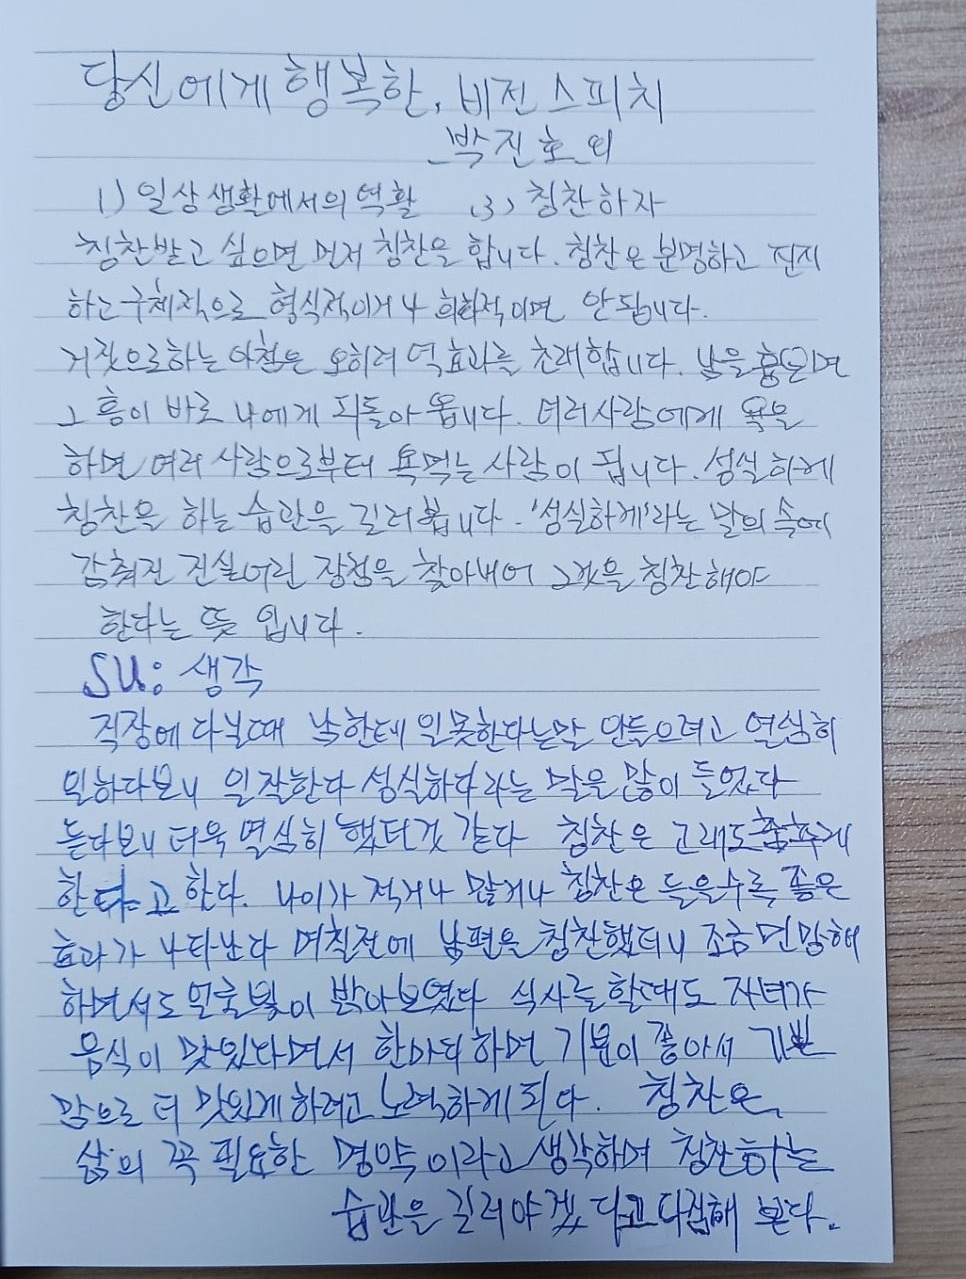 당신에게 행복한, 비전 스피치
박진호 외
1) 일상생활에서의 역활 (3) 칭찬하자
칭찬받고 싶으면 먼저 칭찬을 합니다. 칭찬은 분명하고 진지
하고 구체적으로 형식적이거나 희화적이면 안됩니다.
거짓으로하는 아첨은 오히려 역효과를 초래합니다. 남을 흉보면
그 흉이 바로 나에게 되돌아 옵니다. 여러사람에게 욕을
하면 여러 사람으로부터 욕먹는 사람이 됩니다. 성실하게
칭찬을 하는 습관을 길러봅니다. '성실하게'라는 말의 속에
감춰진 진실어린 장점을 찾아내어 그것을 칭찬해야
한다는 뜻 입니다.
SU: 생각
직장에 다닐때 남한테 일못한다는말 안들으려고 열심히
일하다보니 일잘한다 성실하다라는 말을 많이 들었다
듣다보니 더욱 열심히 했던것 같다 칭찬은 고래도춤추게
한다고 한다. 나이가 적거나 많거나 칭찬은 들을수록 좋은
효과가 나타난다 며칠전에 남편을 칭찬했더니 조금 민망해
하면서도 얼굴빛이 밝아보였다 식사를 할때도 자녀가
음식이 맛있다면서 한마디하면 기분이 좋아서 기쁜
맘으로 더 맛있게하려고 노력하게 된다. 칭찬은
삶의 꼭 필요한 명약 이라고 생각하며 칭찬하는
습관을 길러야겠 다고 다짐해 본다.